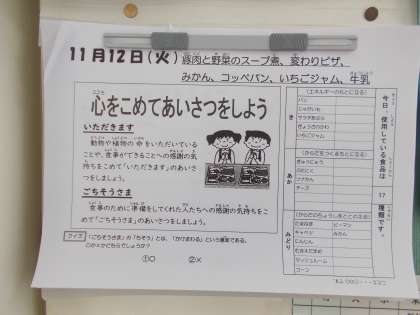 11月12日(火) 豚肉と野菜のスープ煮、変わりピザ、
みかん、コッペパン、いちごジャム、牛乳
心をこめてあいさつをしよう
いただきます
動物や植物の命をいただいている
ことや、食事ができることへの感謝の気
持ちをこめて「いただきます」のあいさ
つをしましょう。
ごちそうさま
食事のために準備をしてくれた人たちへの感謝の気持ちをこ
めて「ごちそうさま」のあいさつをしましょう。
クイズ 「ごちそうさま」の「ちそう」とは、「かけまわる」という意味である。
○か×かどちらでしょうか?
①○ ②×
今日、使用している食品は
17
種類です。
き
(エネルギーのもとになる)
パン
じゃがいも
サラダあぶら
ぎょうざのかわ
いちごジャム
あか
(からだをつくるもとになる)
ぎゅうにゅう
ぶたにく
ツナかん
チーズ
みどり
たまねぎ ピーマン
キャベツ みかん
にんじん
マッシュルーム
コーン